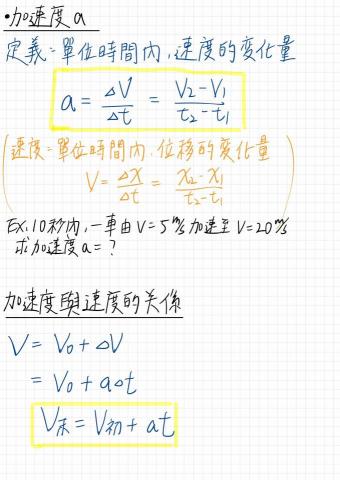 •加速度a
定義:單位時間內,速度的變化量
a = ΔV/Δt = V₂-V₁/t₂-t₁
(速度:單位時間內,位移的變化量
V = ΔX/Δt = X₂-X₁/t₂-t₁)
EX:10秒內,一車由V=5m/s加速至V=20m/s
求加速度a=?
加速度與速度的关係
V = V₀ + ΔV
= V₀ + aΔt
V末 = V初 + at